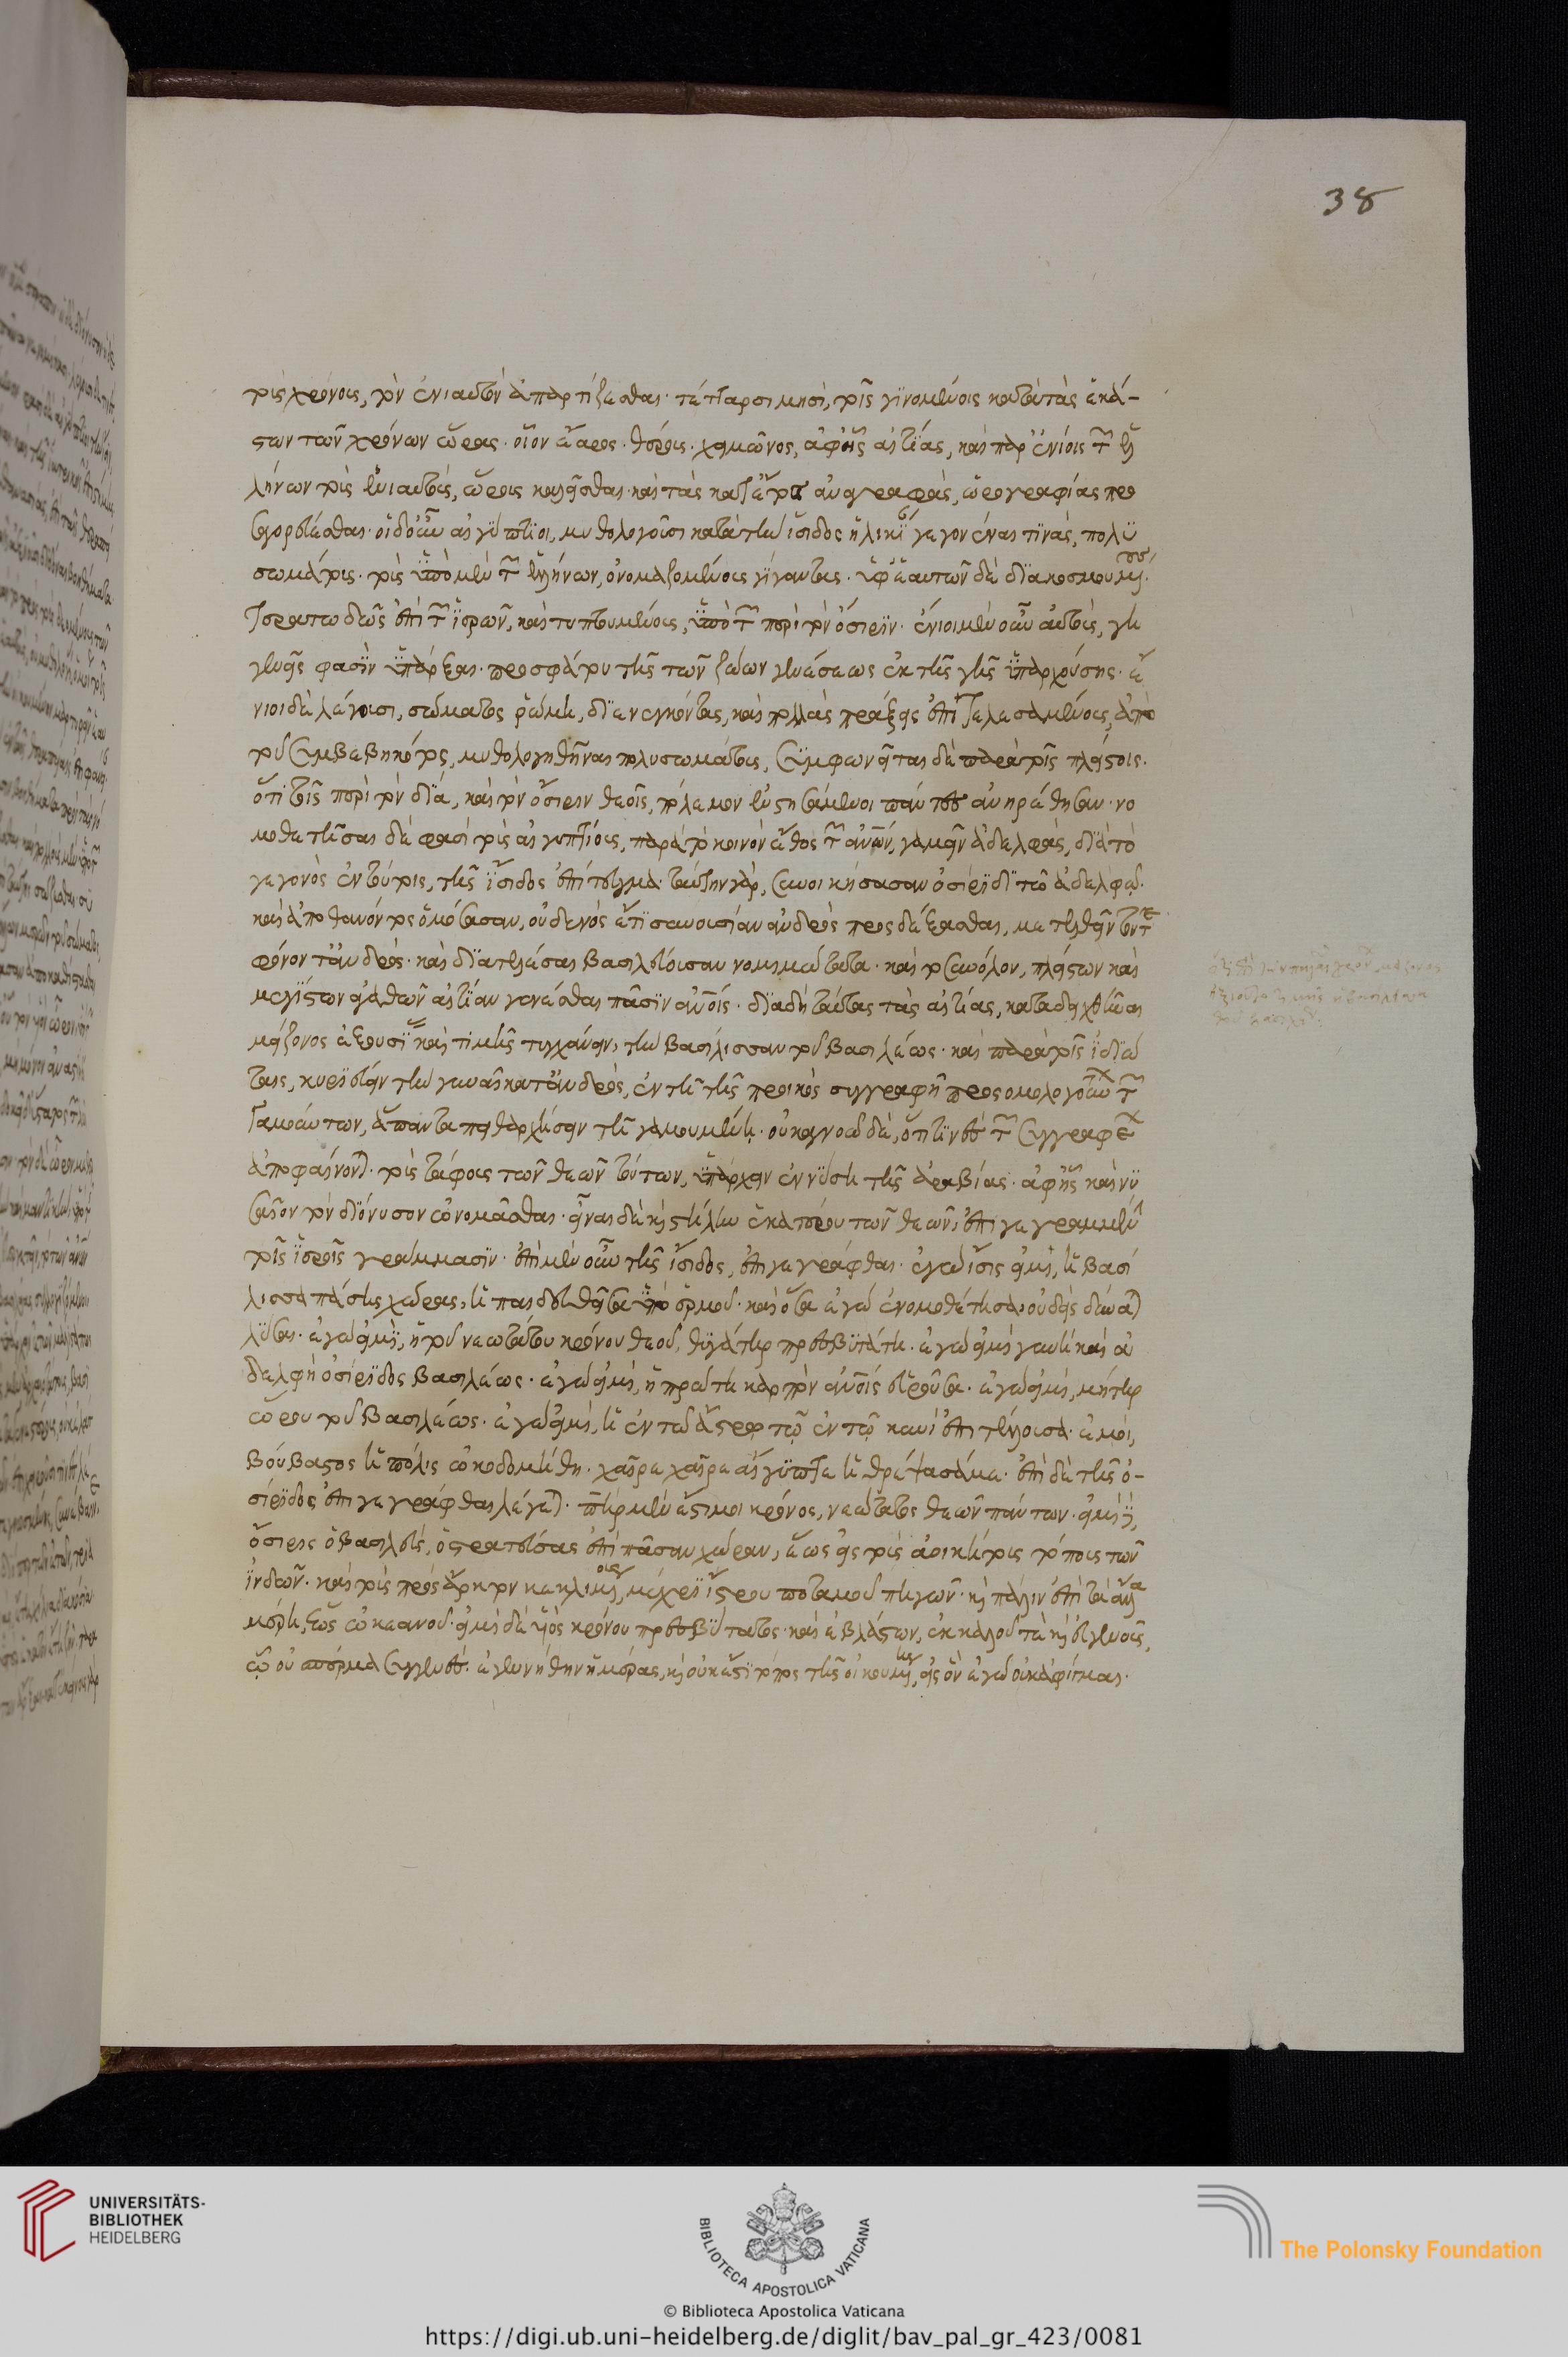 τοῖς χρόνοις, τὸν ἐνιαυτὸν ἀπαρτίζεσθαι· τέτταρσι μησὶ, τοῖς γινομένοις κατὰ τὰς ἑκά-
στων τῶν χρόνων ὥρας· οἷον ἔαρος· θέρους· χειμῶνος, ἀφ' ἧς αἰτίας, καὶ παρ' ἐνίοις τῶν ἑλ
λήνων τοὺς ἐνιαυτοὺς, ὥρους καλεῖσθαι· καὶ τὰς κατ' ἔτος ἀναγραφὰς, ὡρογραφίας προ
σαγορεύεσθαι· οἱ δ' οὖν αἰγύπτιοι, μυθολογοῦσι κατὰ τὴν ἴσιδος ἡλικίαν γεγονέναι τινὰς, πολυ
σωμάτους· τοὺς ὑπὸ μὲν τῶν ἑλλήνων, ὀνομαζομένους γίγαντας· ὑφ' ἑαυτῶν δὲ διακοσμουμένους·
τερατωδῶς ἐπὶ τῶν ἱερῶν, καὶ τυπτομένους, ὑπὸ τῶν περὶ τὸν ὄσιριν· ἔνιοι μὲν οὖν αὐτοὺς, γη
γενεῖς φασὶν ὑπάρξαι· προσφάτου τῆς τῶν ζώων γενέσεως ἐκ τῆς γῆς ὑπαρχούσης· ἔ
νιοι δὲ λέγουσι, σώματος ῥώμη, διενεγκόντας, καὶ πολλὰς πράξεις ἐπιτελεσαμένους, ἀπὸ
τοῦ συμβεβηκότος, μυθολογηθῆναι πολυσωμάτους, συμφωνεῖται δὲ παρὰ τοῖς πλείστοις·
ὅτι τοῖς περὶ τὸν δία, καὶ τὸν ὄσιριν θεοῖς, πόλεμον ἐνστησάμενοι πάντες ἀνηρέθησαν· νο
μοθετῆσαι δέ φασι τοὺς αἰγυπτίους, παρὰ τὸ κοινὸν ἔθος τῶν ἀνθρώπων, γαμεῖν ἀδελφὰς, διὰ τὸ
γεγονὸς ἐν τούτοις, τῆς ἴσιδος ἐπίτευγμα· ταύτην γὰρ, συνοικήσασαν ὀσίριδι τῷ ἀδελφῷ·
καὶ ἀποθανόντος ὀμόσασαν, οὐδενὸς ἔτι συνουσίαν ἀνδρὸς προσδέξασθαι, μετελθεῖν τόν τε
φόνον τἀνδρὸς· καὶ διατελέσαι βασιλεύουσαν νομιμώτατα· καὶ τὸ σύνολον, πλείστων καὶ
μεγίστων ἀγαθῶν αἰτίαν γενέσθαι πᾶσιν ἀνθρώποις· διὰ δὴ ταύτας τὰς αἰτίας, καταδειχθῆναι
μείζονος ἐξουσίας καὶ τιμῆς τυγχάνειν, τὴν βασίλισσαν τοῦ βασιλέως· καὶ παρὰ τοῖς ἰδιώ
ταις, κυριεύειν τὴν γυναῖκα τἀνδρὸς, ἐν τῇ τῆς προικὸς συγγραφῇ προσομολογούντων τῶν
γαμούντων, ἅπαντα πειθαρχήσειν τῇ γαμουμένῃ· οὐκ ἀγνοῶ δὲ, ὅτι τινὲς τῶν συγγραφέων
ἀποφαίνονται τοὺς τάφους τῶν θεῶν τούτων, ὑπάρχειν ἐν νύσῃ τῆς ἀραβίας· ἀφ' ἧς καὶ νυ
σαῖον τὸν διόνυσον ὠνομᾶσθαι· εἶναι δὲ καὶ στήλην ἑκατέρου τῶν θεῶν, ἐπιγεγραμμένην
τοῖς ἱεροῖς γράμμασιν· ἐπὶ μὲν οὖν τῆς ἴσιδος, ἐπιγεγράφθαι· ἐγὼ ἶσις εἰμὶ, ἡ βασί
λισσα πάσης χώρας, ἡ παιδευθεῖσα ὑπὸ ἑρμοῦ· καὶ ὅσα ἐγὼ ἐνομοθέτησα, οὐδεὶς δύναται
λῦσαι· ἐγὼ εἰμὶ, ἡ τοῦ νεωτάτου κρόνου θεοῦ, θυγάτηρ πρεσβυτάτη· ἐγὼ εἰμὶ γυνὴ καὶ ἀ
δελφὴ ὀσίριδος βασιλέως· ἐγὼ εἰμὶ, ἡ πρώτη καρπὸν ἀνθρώποις εὑροῦσα· ἐγὼ εἰμὶ, μήτηρ
ὥρου τοῦ βασιλέως· ἐγὼ εἰμὶ, ἡ ἐν τῷ ἄστρῳ τῷ ἐν τῷ κυνὶ ἐπιτέλλουσα· ἐμοὶ,
βούβαστος ἡ πόλις ὠκοδομήθη· χαῖρε χαῖρε αἴγυπτε ἡ θρέψασά με· ἐπὶ δὲ τῆς ὀ-
σίριδος ἐπιγεγράφθαι λέγεται· πατὴρ μὲν ἔστί μοι κρόνος, νεώτατος θεῶν πάντων· εἰμὶ δὲ,
ὄσιρις ὁ βασιλεὺς, ὁ στρατεύσας ἐπὶ πᾶσαν χώραν, ἕως εἰς τοὺς ἀοικήτους τόπους τῶν
ἰνδῶν· καὶ τοὺς πρὸς ἄρκτον κεκλιμένους, μέχρι ἴστρου ποταμοῦ πηγῶν· καὶ πάλιν ἐπὶ τἄλλα
μέρη, ἕως ὠκεανοῦ· εἰμὶ δὲ υἱὸς κρόνου πρεσβύτατος· καὶ ἐβλάστων, ἐκ καλοῦ τε καὶ εὐγενοῦς,
ὠοῦ σπέρμα συγγενὲς· ἐγεννήθην ἡμέρας, καὶ οὐκ ἔστι τόπος τῆς οἰκουμένης, εἰς ὃν ἐγὼ οὐκ ἀφίγμαι·
38
UNIVERSITÄTS-
BIBLIOTHEK
HEIDELBERG
BIBLIOTECA APOSTOLICA VATICANA
© Biblioteca Apostolica Vaticana
The Polonsky Foundation
https://digi.ub.uni-heidelberg.de/diglit/bav_pal_gr_423/0081